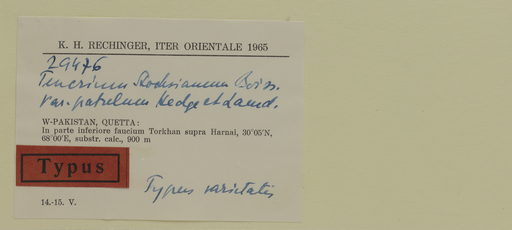 K. H. RECHINGER, ITER ORIENTALE 1965
29476
Teucrium Stocksianum Boiss.
var. patulum Hedge et Lamd.
W-PAKISTAN, QUETTA:
In parte inferiore faucium Torkhan supra Harnai, 30°05'N,
68°00'E, substr. calc., 900 m
Typus
Typus varietatis
14.-15. V.